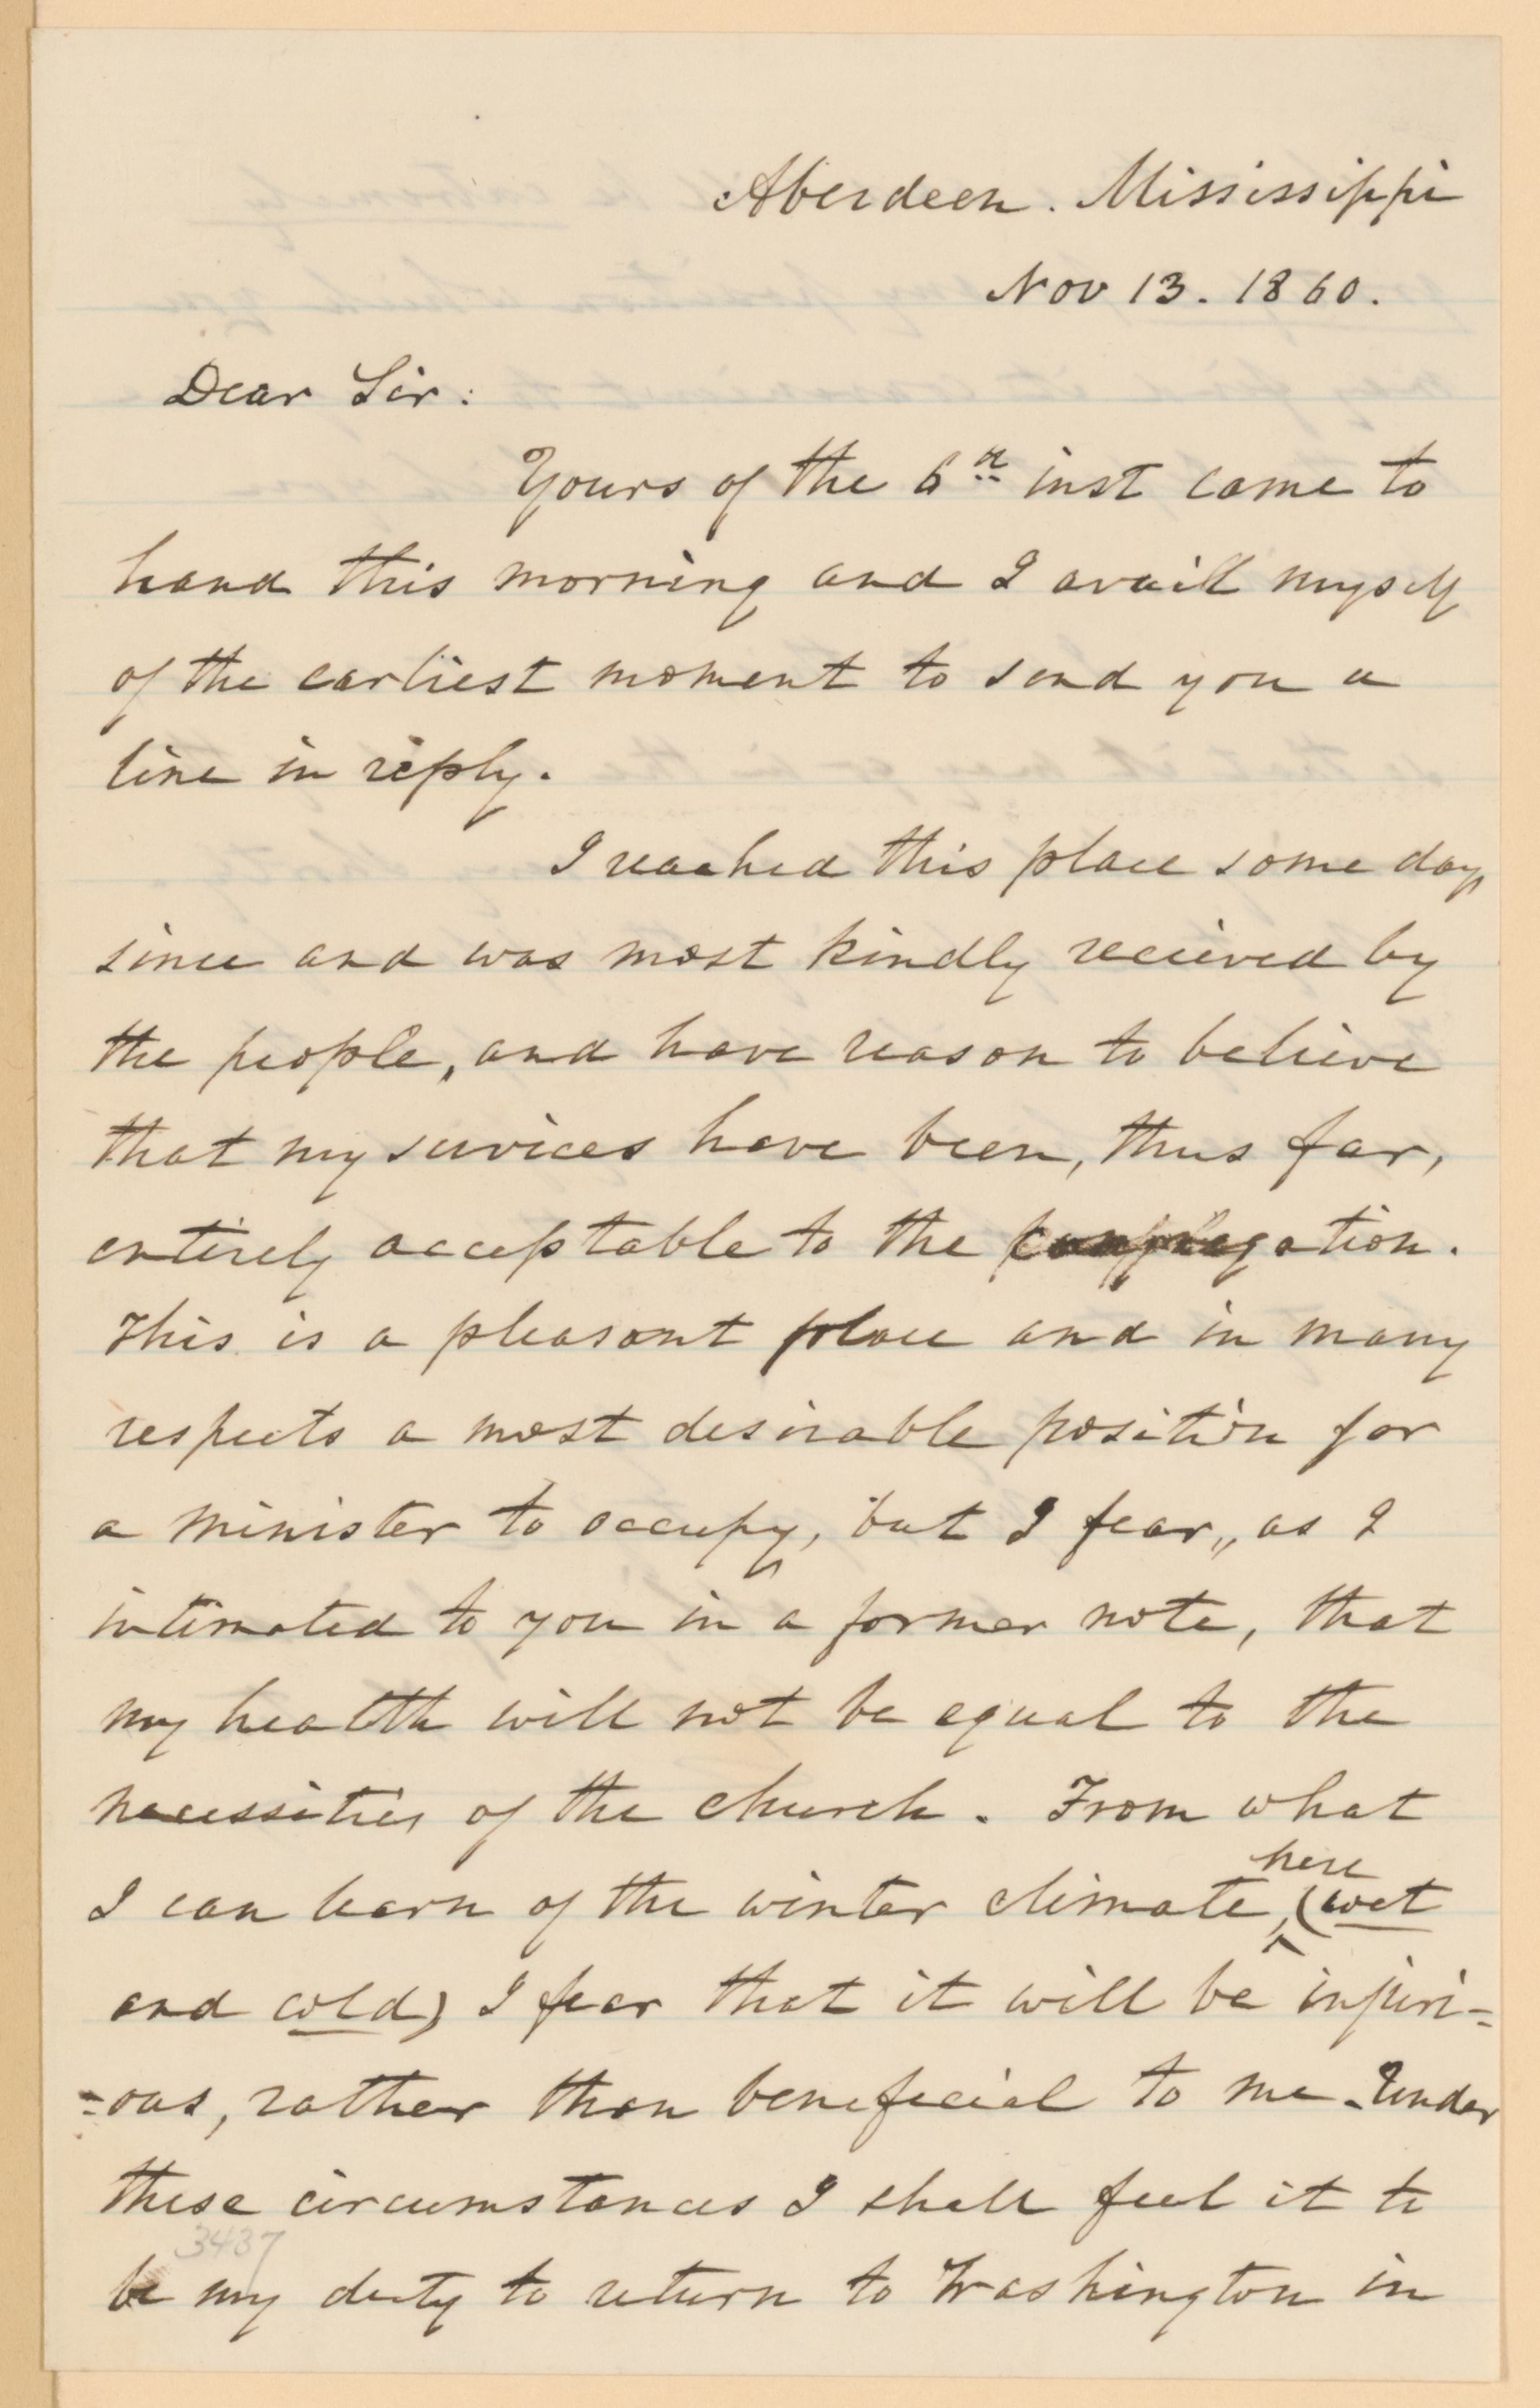 Aberdeen. Mississippi
Nov 13. 1860.
Dear Sir:
Yours of the 6th inst came to
hand this morning and I avail myself
of the earliest moment to send you a
line in reply.
I reached this place some days
since and was most kindly recieved by
the people, and have reason to believe
that my services have been, thus far,
entirely acceptable to the congregation.
This is a pleasant place and in many
respects a most desirable position for
a minister to occupy, but I fear, as I
intimated to you in a former note, that
my health will not be equal to the
necessities of the church. From what
here
I can learn of the winter climate, (wet
and cold) I fear that it will be injuri=
=ous, rather than beneficial to me. Under
these circumstances I shall feel it to
3437
be my duty to return to Washington in